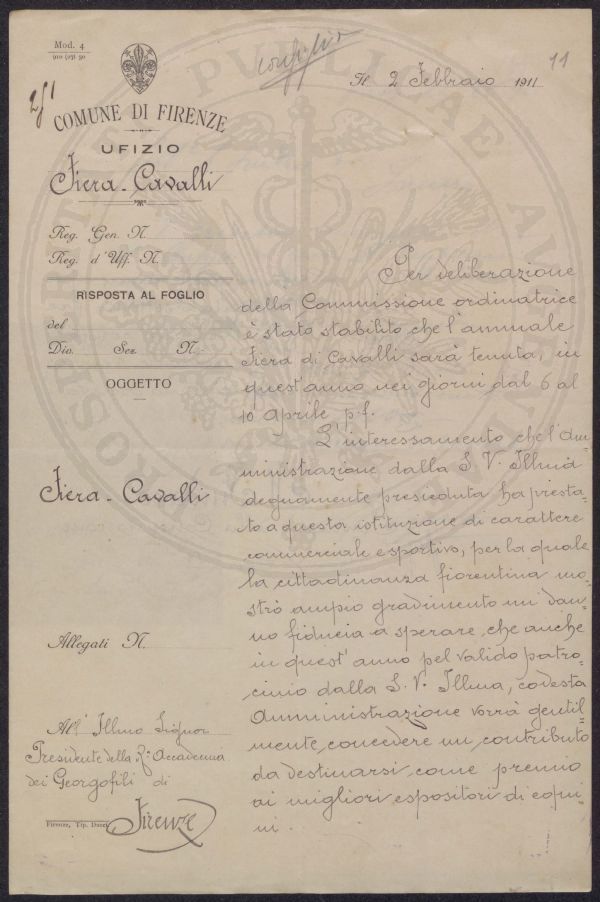 Mod. 4
11
Il 2 Febbraio 1911
COMUNE DI FIRENZE
UFIZIO
Fiera-Cavalli
Reg. Gen. N.
Reg. d'Uff. N.
RISPOSTA AL FOGLIO
del
Div. Sez. N.
OGGETTO
Fiera-Cavalli
Allegati N.
All' Illmo Signor
Presidente della R. Accademia
dei Georgofili di
Firenze
Firenze, Tip.
Per deliberazione
della Commissione ordinatrice
è stato stabilito che l'annuale
Fiera di Cavalli sarà tenuta, in
quest'anno nei giorni dal 6 al
10 aprile p.f.
L'interessamento che l'Am-
ministrazione dalla S. V. Illma
degnamente presieduta ha presta-
to a questa istituzione di carattere
commerciale e sportivo, per la quale
la cittadinanza fiorentina mo-
strò ampio gradimento mi dan-
no fiducia a sperare, che anche
in quest'anno pel valido patro-
cinio dalla S. V. Illma, codesta
Amministrazione vorrà gentil-
mente, concedere un contributo
da destinarsi come premio
ai migliori espositori di equi-
ni.